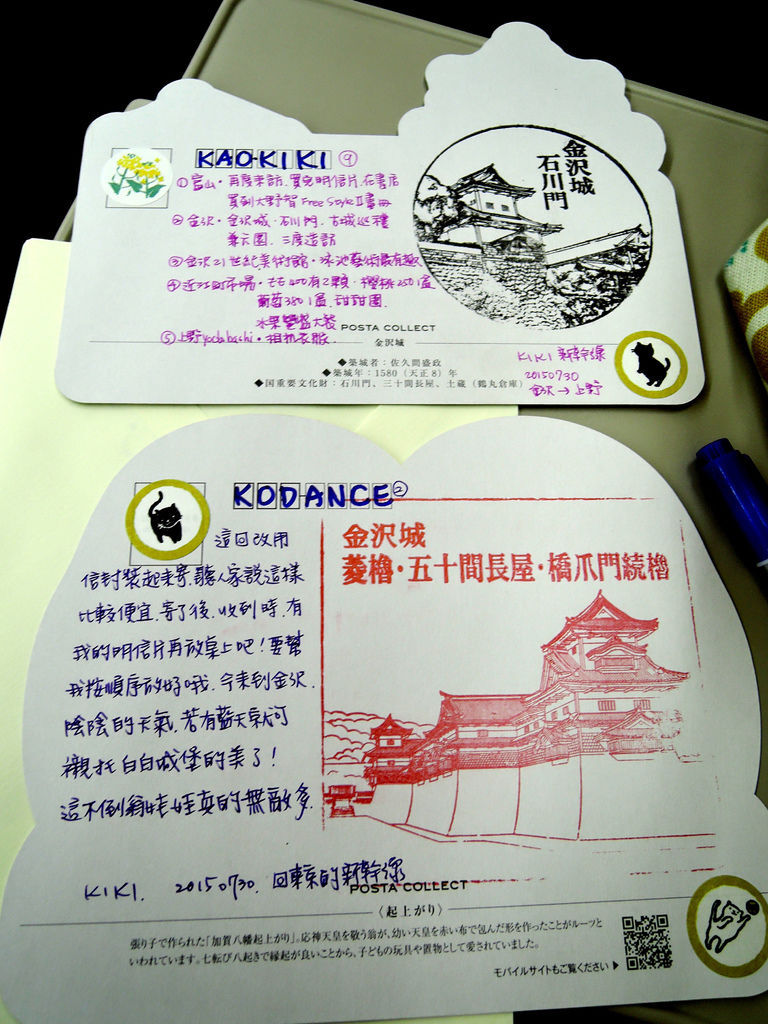 KAO-KIKI ⑨
①富山・再度来訪.買完明信片.在書店
買到大野智 Free Style II 畫冊
②金沢・金沢城.石川門.古城巡禮
兼六園.三度造訪
③金沢21世紀美術館・泳池藝術最有趣
④近江町市場・もも400有2顆・櫻桃2501盒
葡萄380 1盒.甜甜圈.
水果豐盛大餐
⑤上野yodobashi・相机衣服
金沢城
石川門
POSTA COLLECT
金沢城
◆築城者:佐久間盛政
◆築城年:1580(天正8)年
◆国重要文化財:石川門、三十間長屋、土蔵(鶴丸倉庫)
KIKI 新幹線
20150730
金沢→上野
KODANCE②
這回改用
信封裝起來寄.聽人家說這樣
比較便宜.寄了後.收到時.有
我的明信片再放桌上吧!要幫
我按順序放好哦.今来到金沢.
陰陰的天氣.若有藍天就可
襯托白白城堡的美了!
這不倒翁娃娃真的無敵多.
KIKI. 20150730. 回東京的新幹線
金沢城
菱櫓・五十間長屋・橋爪門続櫓
POSTA COLLECT
〈起上がり〉
張り子で作られた「加賀八幡起上がり」。応神天皇を敬う翁が、幼い天皇を赤い布で包んだ形を作ったことがルーツと
いわれています。七転び八起きで縁起が良いことから、子どもの玩具や置物として愛されていました。
モバイルサイトもご覧ください▶